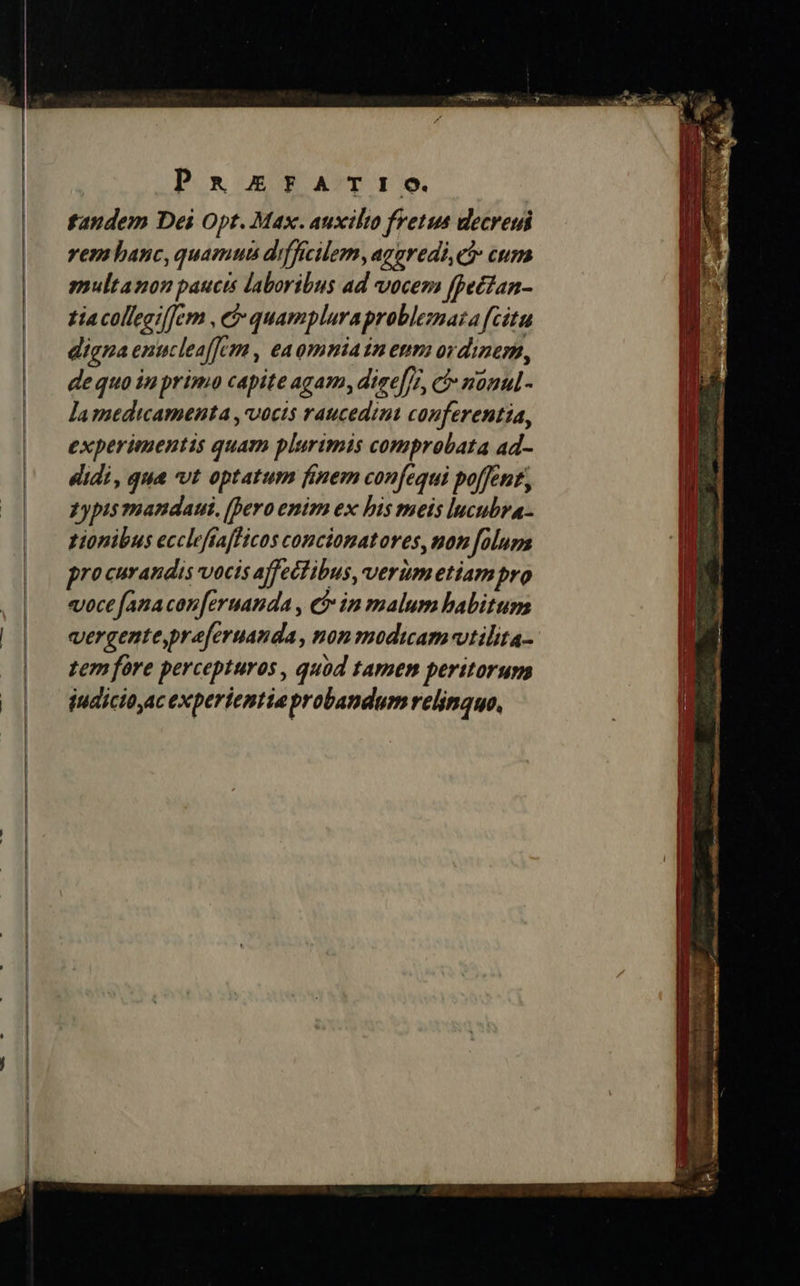 PRÆFATIO.
tandem Dei Opt. Max. auxilio fretus decreui
rem hanc, quamuis difficilem, aggredi, & cum
multa non paucis laboribus ad vocem ſpectan-
tia collegiſſem, & quamplura problemata ſcitu
digna enucleaſſem, ea omnia in eum ordinem,
de quo in primo capite agam, digeſſi, & nonul-
la medicamenta, vocis raucedini conferentia,
experimentis quam plurimis comprobata ad-
didi, quæ vt optatum finem conſequi poſſent,
typis mandaui. ſpero enim ex his meis lucubra-
tionibus eccleſiaſticos concionatores, non ſolum
pro curandis vocis affectibus, verùm etiam pro
voce ſana conſeruanda, & in malum habitum
vergente, præſeruanda, non modicam vtilita-
tem fore percepturos, quòd tamen peritorum
iudicio, ac experientiæ probandum relinquo,